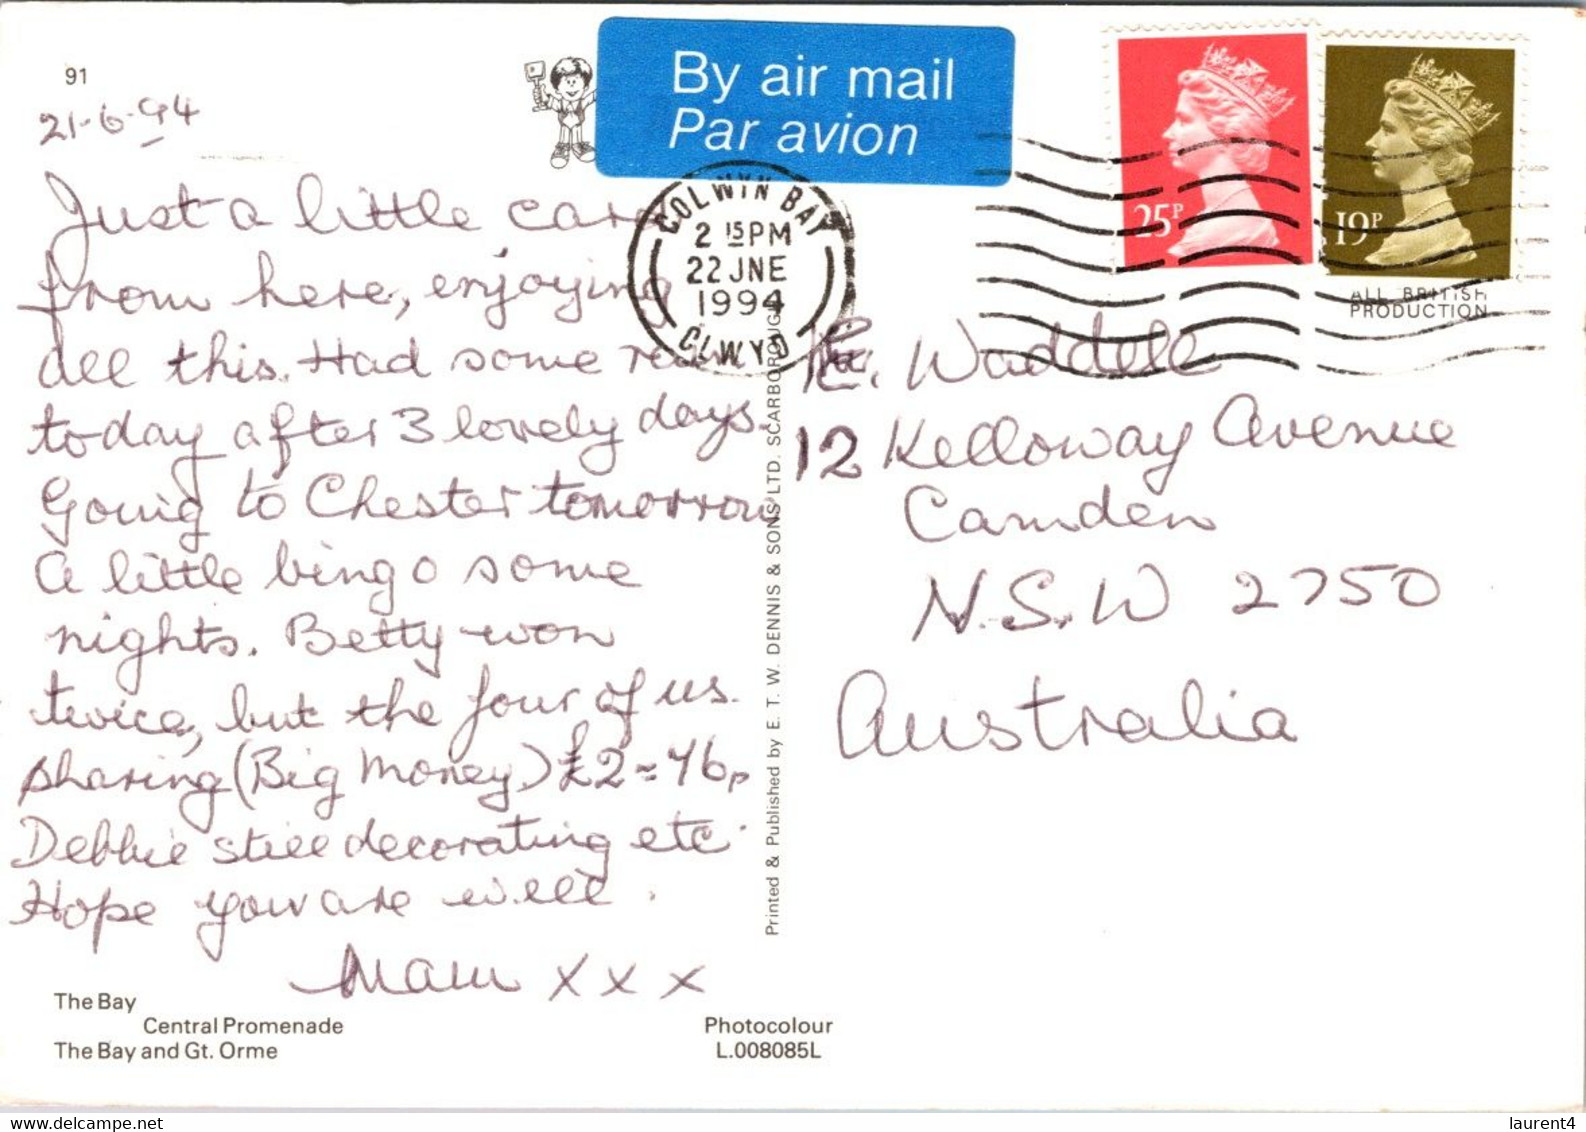 91
21-6-94
By air mail
Par avion
25P
19P
COLWYN BAY
2 15PM
22 JNE
1994
CLWYD
ALL BRITISH
PRODUCTION
Just a little card
from here, enjoying
all this. Had some rain
today after 3 lovely days.
Going to Chester tomorrow
A little bingo some
nights. Betty won
twice, but the four of us.
sharing (Big Money) £2 = 46p
Debbie still decorating etc.
Hope you are well.
Mam x x x
Waddell
12 Kelloway Avenue
Camden
N.S.W 2750
Australia
Printed & Published by E. T. W. DENNIS & SONS LTD. SCARBOROUGH
The Bay
Central Promenade
The Bay and Gt. Orme
Photocolour
L.008085L
delcampe.net
laurent4